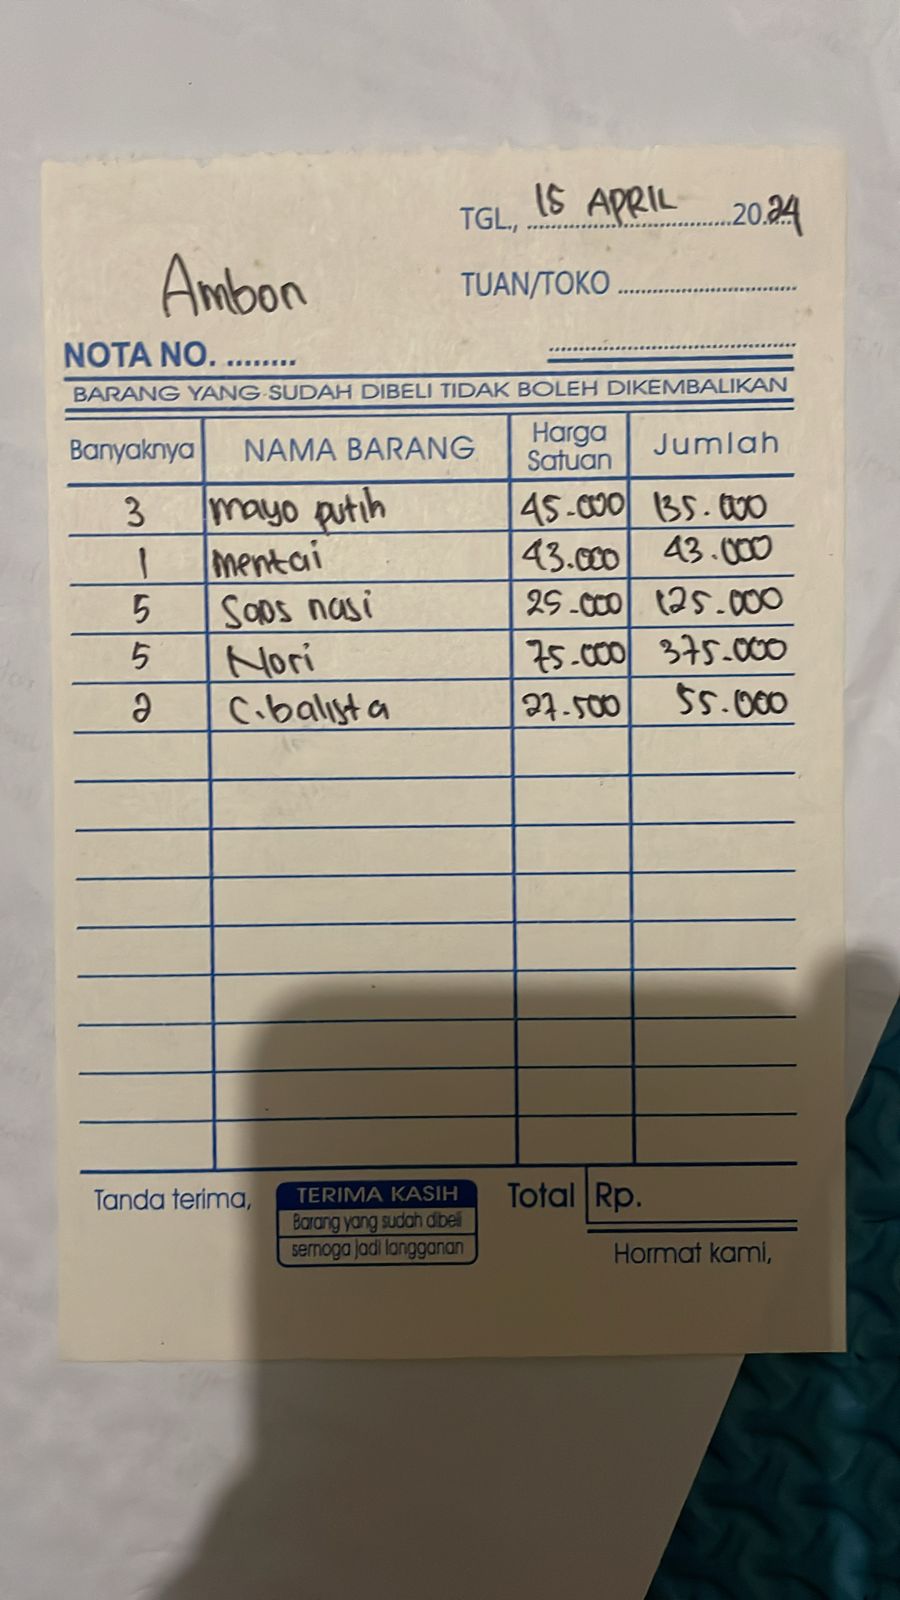 TGL., 15 APRIL 2024
Ambon
TUAN/TOKO
NOTA NO.
BARANG YANG SUDAH DIBELI TIDAK BOLEH DIKEMBALIKAN
Banyaknya NAMA BARANG Harga Satuan Jumlah
3 mayo putih 45.000 135.000
1 mentai 43.000 43.000
5 Saos nasi 25.000 125.000
5 Nori 75.000 375.000
2 C.balista 27.500 55.000
Tanda terima, TERIMA KASIH Total Rp.
Barang yang sudah dibeli
semoga jadi langganan
Hormat kami,